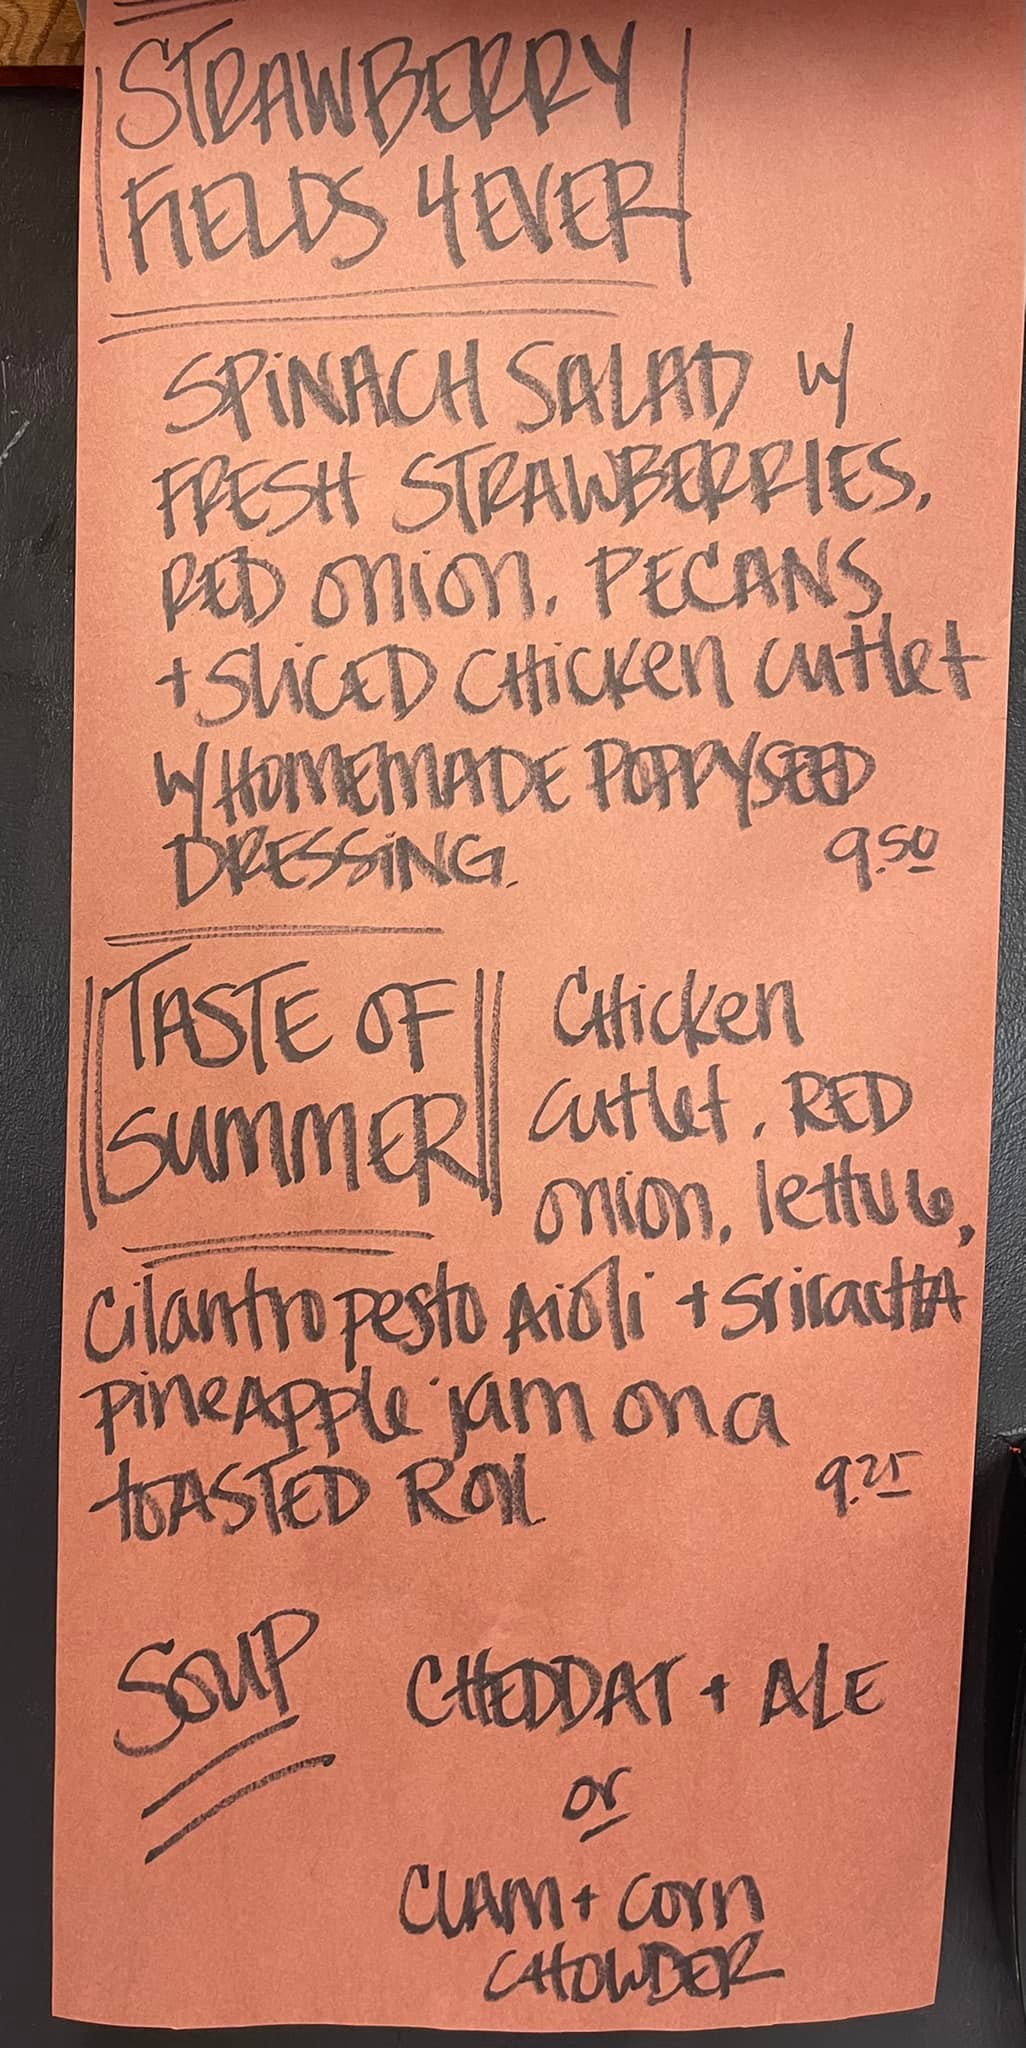 STRAWBERRY
FIELDS 4EVER
SPINACH SALAD W/
FRESH STRAWBERRIES,
RED ONION, PECANS
+ SLICED CHICKEN CUTLET
W/ HOMEMADE POPPYSEED
DRESSING. 9.50
TASTE OF
SUMMER
CHicken
cutlet, RED
onion, lettuce,
Cilantro pesto Aioli + SriracHA
pineApple jam on a
toASTED ROll 9.25
SOUP
CHEDDAr + ALE
or
CLAM + corn
CHOWDER